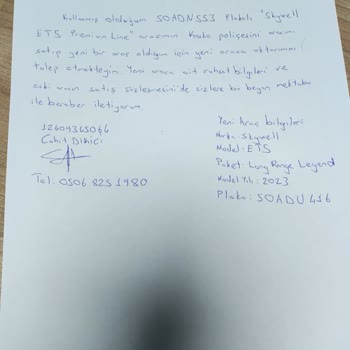 Kullanmış olduğum 50ADN553 Plakalı "Skywell
ET5 Premium Line" aracımın Kasko poliçesini aracımı
satıp yeni bir araç aldığım için yeni araca aktarımını
talep etmekteyim. Yeni araca ait ruhsat bilgileri ve
eski aracın satış sözleşmesini de sizlere bu beyan mektubu
ile beraber iletiyorum
Cahit DİKİCİ
Tel: 0506 825 1980
Yeni Araç bilgileri
Marka: Skywell
Model: ET5
Paket: Long Range Legend
Model Yılı: 2023
Plaka: 50ADU416